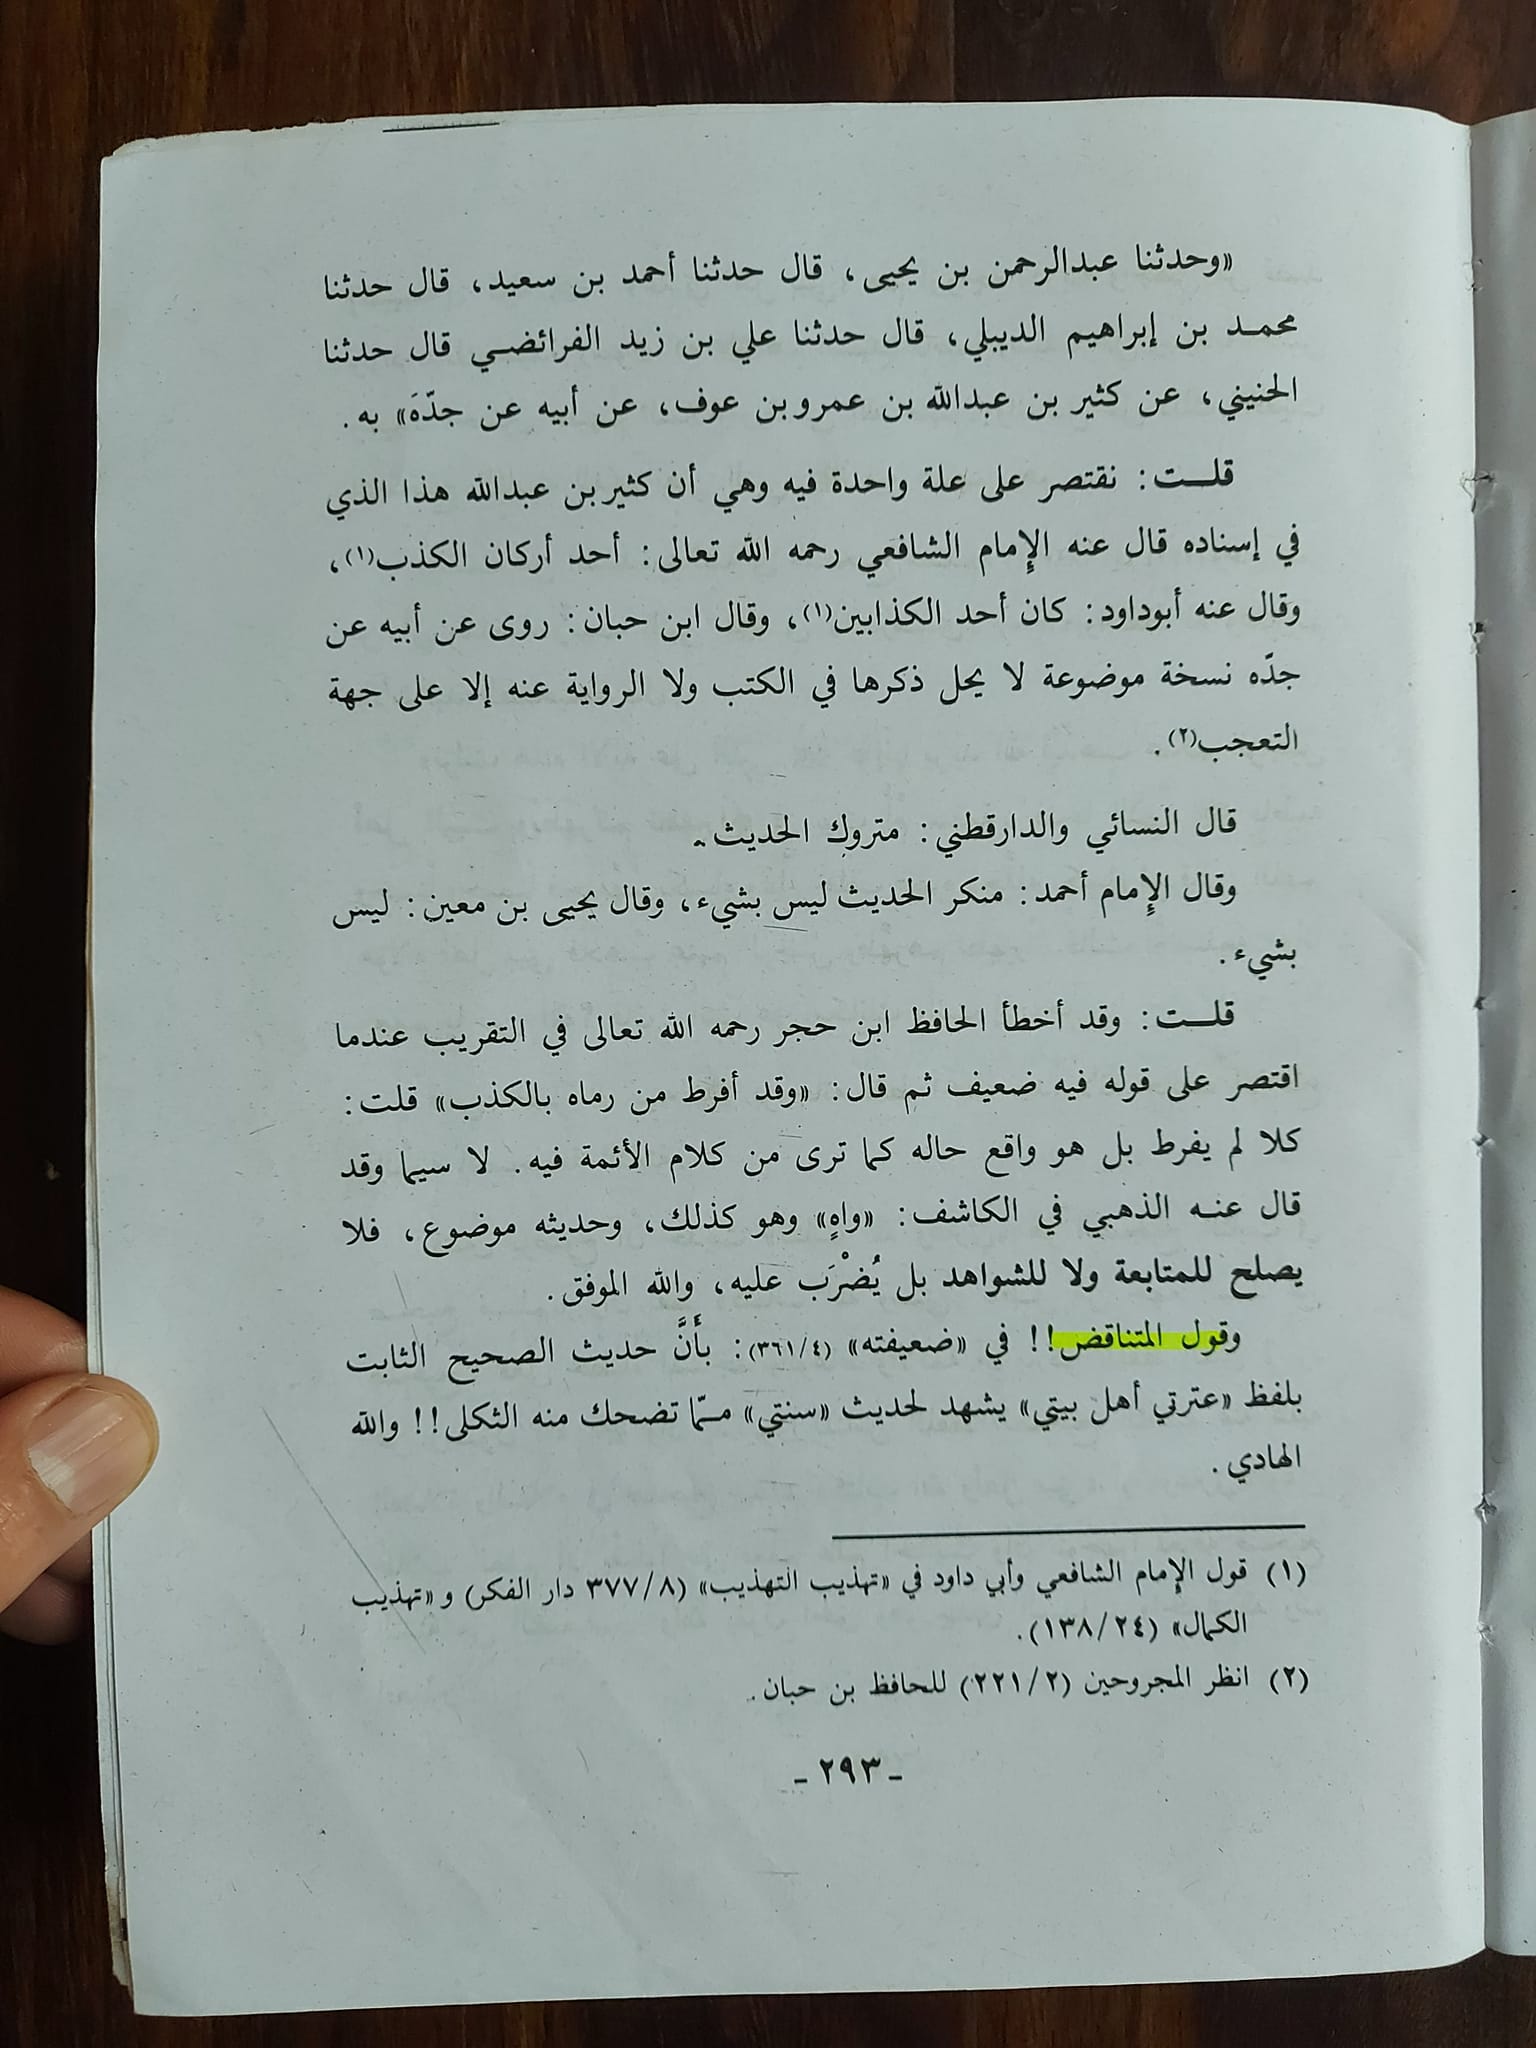 «وحدثنا عبدالرحمن بن يحيى، قال حدثنا أحمد بن سعيد، قال حدثنا
محمـد بن إبراهيم الديبلي، قال حدثنا علي بن زيد الفرائضـي قال حدثنا
الحنيني، عن كثير بن عبدالله بن عمرو بن عوف، عن أبيه عن جدّهَ» به.
قلـــت: نقتصر على علة واحدة فيه وهي أن كثير بن عبدالله هذا الذي
في إسناده قال عنه الإمام الشافعي رحمه الله تعالى: أحد أركان الكذب(١)،
وقال عنه أبوداود: كان أحد الكذابين(١)، وقال ابن حبان: روى عن أبيه عن
جدّه نسخة موضوعة لا يحل ذكرها في الكتب ولا الرواية عنه إلا على جهة
التعجب(٢).
قال النسائي والدارقطني: متروك الحديث.
وقال الإمام أحمد: منكر الحديث ليس بشيء، وقال يحيى بن معين: ليس
بشيء.
قلـــت: وقد أخطأ الحافظ ابن حجر رحمه الله تعالى في التقريب عندما
اقتصر على قوله فيه ضعيف ثم قال: «وقد أفرط من رماه بالكذب» قلت:
كلا لم يفرط بل هو واقع حاله كما ترى من كلام الأئمة فيه. لا سيما وقد
قال عنـه الذهبي في الكاشف: «واهٍ» وهو كذلك، وحديثه موضوع، فلا
يصلح للمتابعة ولا للشواهد بل يُضْرَب عليه، والله الموفق.
وقول المتناقض!! في «ضعيفته» (٣٦١/٤): بأَنَّ حديث الصحيح الثابت
بلفظ «عترتي أهل بيتي» يشهد لحديث «سنتي» مـمّا تضحك منه الثكلى!! والله
الهادي.
(١) قول الإمام الشافعي وأبي داود في «تهذيب التهذيب» (٣٧٧/٨ دار الفكر) و«تهذيب
الكمال» (١٣٨/٢٤).
(٢) انظر المجروحين (٢٢١/٢) للحافظ بن حبان.
- ٢٩٣ -